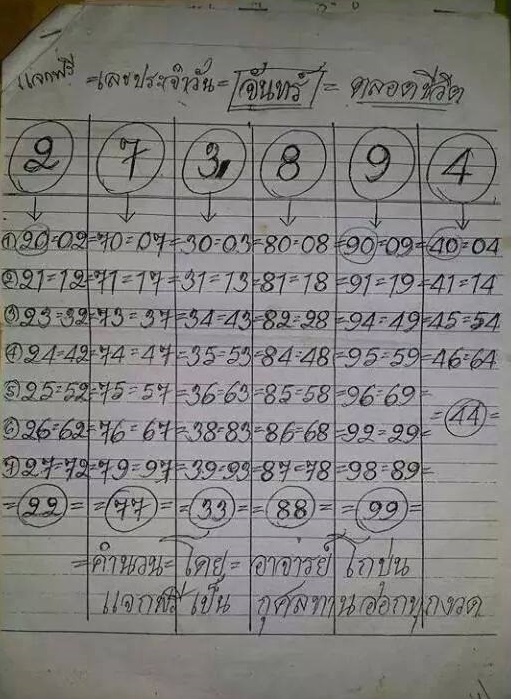 แจกฟรี =เลขประจำวัน= จันทร์ = ตลอดชีวิต
2 7 3 8 9 4
① 20=02=70=07=30=03=80=08=90=09=40=04
② 21=12=71=17=31=13=81=18=91=19=41=14
③ 23=32=73=37=34=43=82=28=94=49=45=54
④ 24=42=74=47=35=53=84=48=95=59=46=64
⑤ 25=52=75=57=36=63=85=58=96=69=
=44=
⑥ 26=62=76=67=38=83=86=68=92=29=
⑦ 27=72=79=97=39=93=87=78=98=89=
=22= =77= =33= =88= =99=
=คำนวน=โดย= อาจารย์ โกปุ่น
แจกฟรี เป็น กุศลทาน ออกทุกงวด